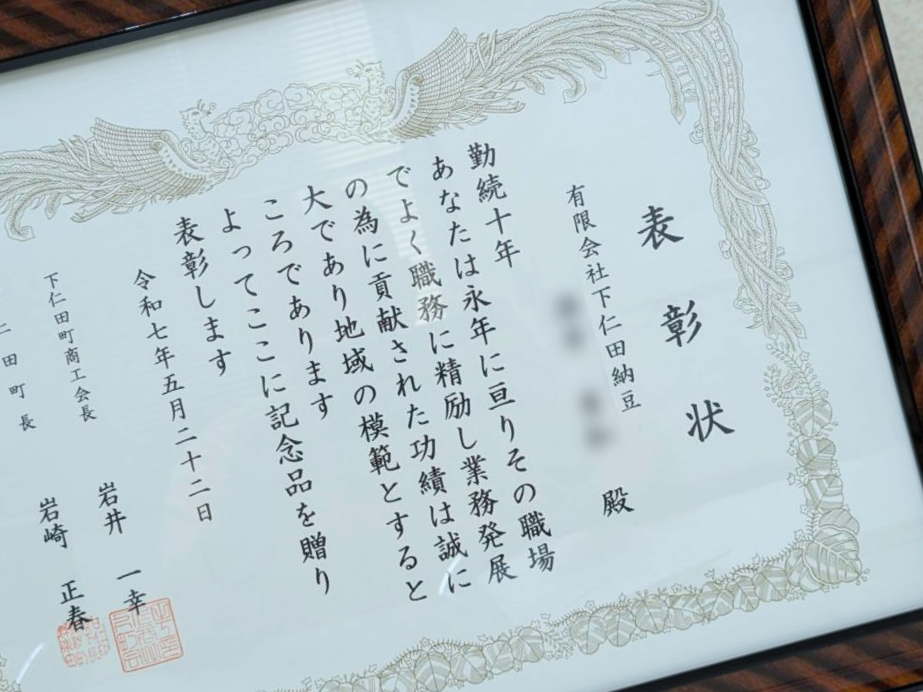 表彰状
有限会社下仁田納豆
殿
勤続十年
あなたは永年に亘りその職場
でよく職務に精励し業務発展
の為に貢献された功績は誠に
大であり地域の模範とすると
ころであります
よってここに記念品を贈り
表彰します
令和七年五月二十二日
下仁田町商工会長 岩井 一幸
仁田町長 岩崎 正春